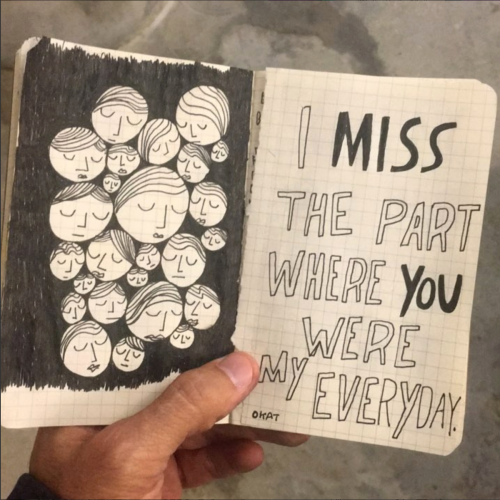 I MISS
THE PART
WHERE YOU
WERE
MY EVERYDAY.
OKAT